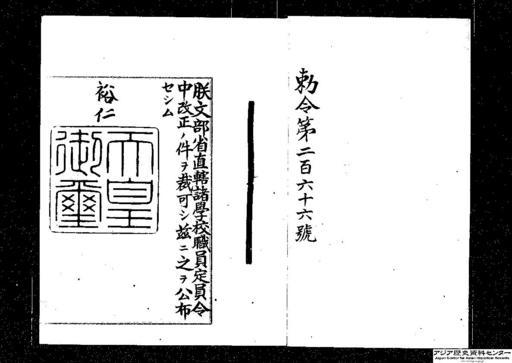 勅令第二百六十六號
朕文部省直轄諸學校職員定員令
中改正ノ件ヲ裁可シ茲ニ之ヲ公布
セシム
裕仁
天皇
御璽
アジア歴史資料センター
Japan Center for Asian Historical Records